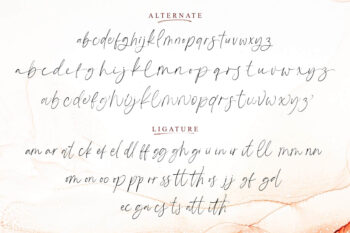 ALTERNATE
abcdefghijklmnopqrstuvwxyz
abcdefghijklmnopqrstuvwxyz
abcdefghijklmnopqrstuvwxyz
LIGATURE
am ar at ck ef el dl ff gg gh gi ui in ur it ll mm nn
om on oo op pp or ss tt th os jj gf gd
ec ga cs ts att ith